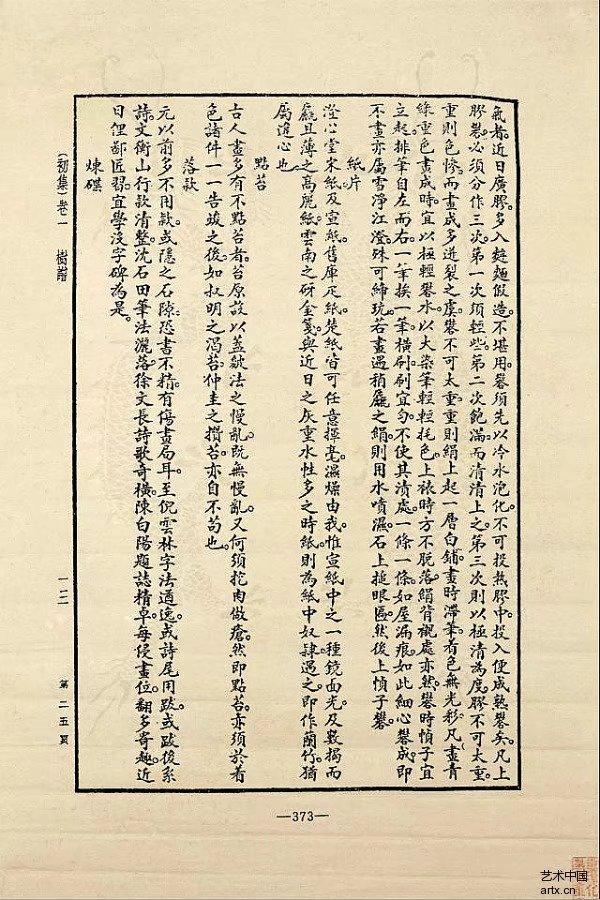 氣者近日廣膠多入麵麵假造不堪用礬須先以冷水泡化不可投熱膠中投入便成熟礬矣凡上
膠礬必須分作三次第一次須輕些第二次飽滿而清清上之第三次則以極清為度膠不可太重
重則色慘而畫成多迸裂之虞礬不可太重重則絹上起一層白鋪畫時滯筆着色無光彩凡畫青
綠重色畫成時宜以極輕礬水以大染筆輕輕托色上裱時方不脫落絹背襯處亦然礬時幀子宜
立起排筆自左而右一筆挨一筆橫刷刷宜勻不使其漬處一條一條如屋漏痕如此細心礬成即
不畫亦屬雪淨江澄殊可締玩若畫過稍麤之絹則用水噴濕石上搥眼匾然後上幀子礬
紙片
澄心堂宋紙及宣紙舊庫疋紙楚紙皆可任意揮毫濕燥由我惟宣紙中之一種鏡面光及數揭而
麤且薄之高麗紙雲南之砑金箋與近日之灰重水性多之時紙則為紙中奴隸遇之即作蘭竹猶
屬違心也
點苔
古人畫多有不點苔者苔原設以蓋皴法之慢亂既無慢亂又何須挖肉做瘡然即點苔亦須於着
色諸件一一告竣之後如叔明之渴苔仲圭之攢苔亦自不苟也
落款
元以前多不用款或隱之石隙恐書不精有傷畫局耳至倪雲林字法遒逸或詩尾用跋或跋後系
詩文衡山行款清整沈石田筆法灑落徐文長詩歌奇橫陳白陽題誌精卓每侵畫位翻多寄趣近
日俚鄙匠習宜學沒字碑為是
煉碟
(初集)卷一 樹譜
一二
第二五頁
—373—
艺术中国
artx.cn